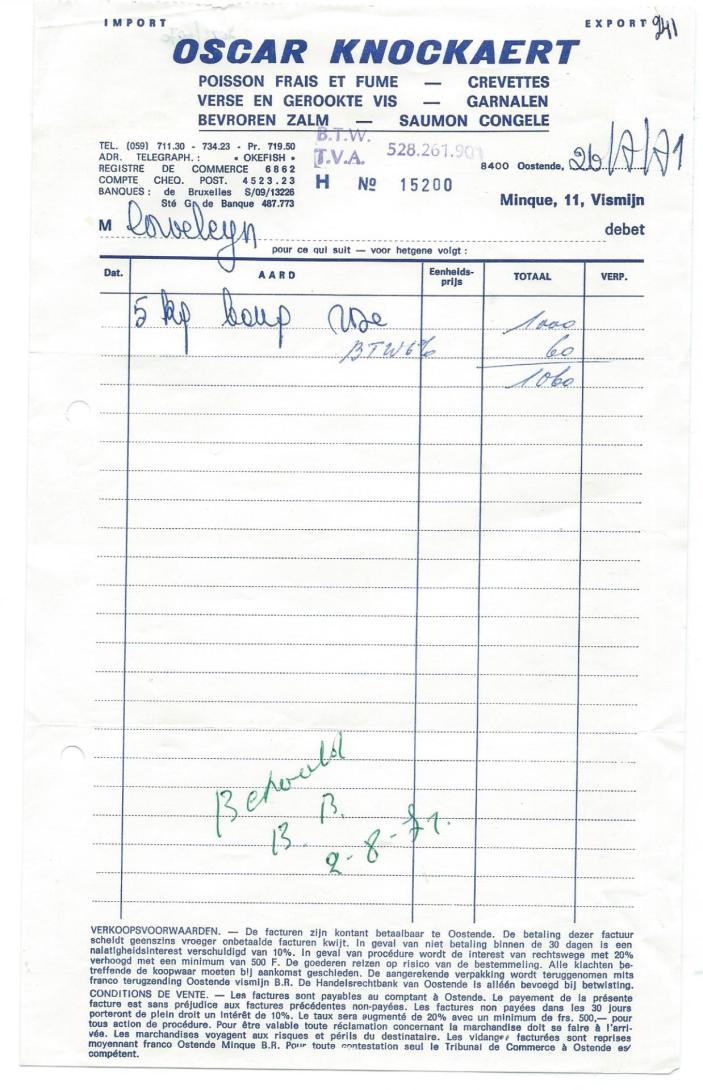 IMPORT EXPORT 941
OSCAR KNOCKAERT
POISSON FRAIS ET FUME — CREVETTES
VERSE EN GEROOKTE VIS — GARNALEN
BEVROREN ZALM — SAUMON CONGELE
TEL. (059) 711.30 - 734.23 - Pr. 719.50
ADR. TELEGRAPH. : • OKEFISH •
REGISTRE DE COMMERCE 6862
COMPTE CHEQ. POST. 4523.23
BANQUES : de Bruxelles S/09/13226
Sté G. de Banque 487.773
B.T.W.
T.V.A. 528.261.901
H No 15200
8400 Oostende, 26/7/71
Minque, 11, Vismijn
M debet
pour ce qui suit — voor hetgene volgt :
Dat. AARD Eenheids-prijs TOTAAL VERP.
5 kg 1000
BTW 6% 60
1060
Betaald
B. B.
2-8-71.
VERKOOPSVOORWAARDEN. — De facturen zijn kontant betaalbaar te Oostende. De betaling dezer factuur
scheldt geenszins vroeger onbetaalde facturen kwijt. In geval van niet betaling binnen de 30 dagen is een
nalatigheidsinterest verschuldigd van 10%. In geval van procédure wordt de interest van rechtswege met 20%
verhoogd met een minimum van 500 F. De goederen reizen op risico van de bestemmeling. Alle klachten be-
treffende de koopwaar moeten bij aankomst geschieden. De aangerekende verpakking wordt teruggenomen mits
franco terugzending Oostende vismijn B.R. De Handelsrechtbank van Oostende is alléén bevoegd bij betwisting.
CONDITIONS DE VENTE. — Les factures sont payables au comptant à Ostende. Le payement de la présente
facture est sans préjudice aux factures précédentes non-payées. Les factures non payées dans les 30 jours
porteront de plein droit un intérêt de 10%. Le taux sera augmenté de 20% avec un minimum de frs. 500,— pour
tous action de procédure. Pour être valable toute réclamation concernant la marchandise doit se faire à l'arri-
vée. Les marchandises voyagent aux risques et périls du destinataire. Les vidanges facturées sont reprises
moyennant franco Ostende Minque B.R. Pour toute contestation seul le Tribunal de Commerce à Ostende est
compétent.